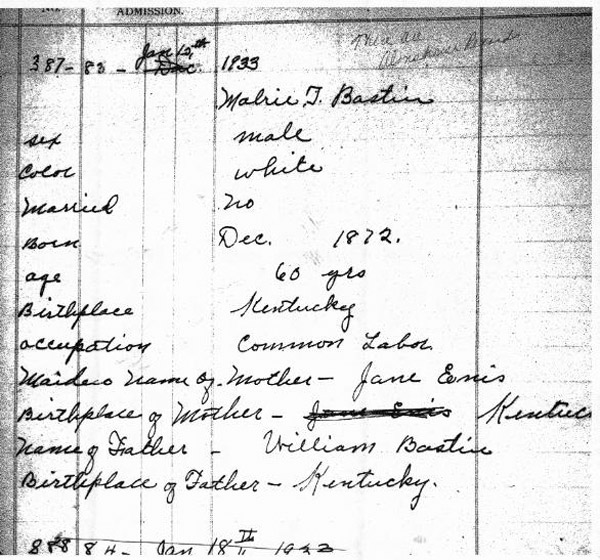 No.
ADMISSION.
There are
387 - 83 - Jan 12th Dec. 1933
Bastin
sex male
Color white
Married no
Born Dec. 1872.
age 60 yrs
Birthplace Kentucky
occupation Common Labor.
Maiden name of Mother - Jane Enis
Birthplace of Mother - Jane Enis Kentuc
Name of Father - William Bastin
Birthplace of Father - Kentucky.
84 - Jan 18th